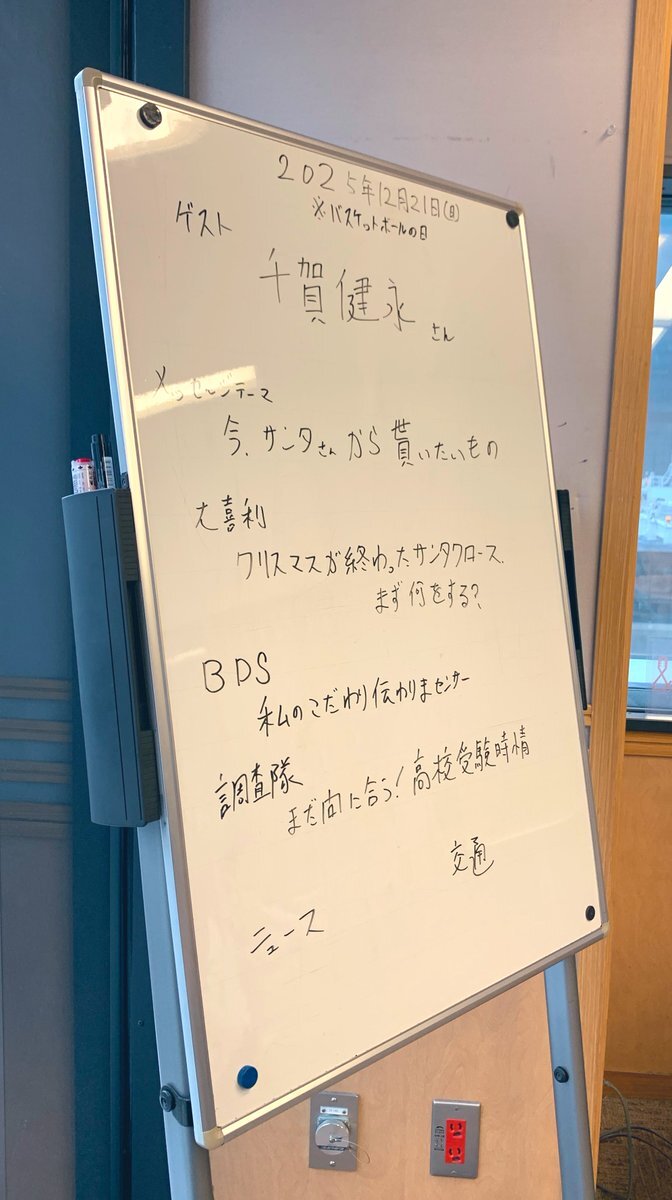 2025年12月21日(日)
※バスケットボールの日
ゲスト
千賀健永さん
メッセージテーマ
今、サンタさんから貰いたいもの
大喜利
クリスマスが終わったサンタクロース、
まず何をする?
BDS
私のこだわり伝わりまセンサー
調査隊
まだ向に合う!高校受験時情
交通
ニュース